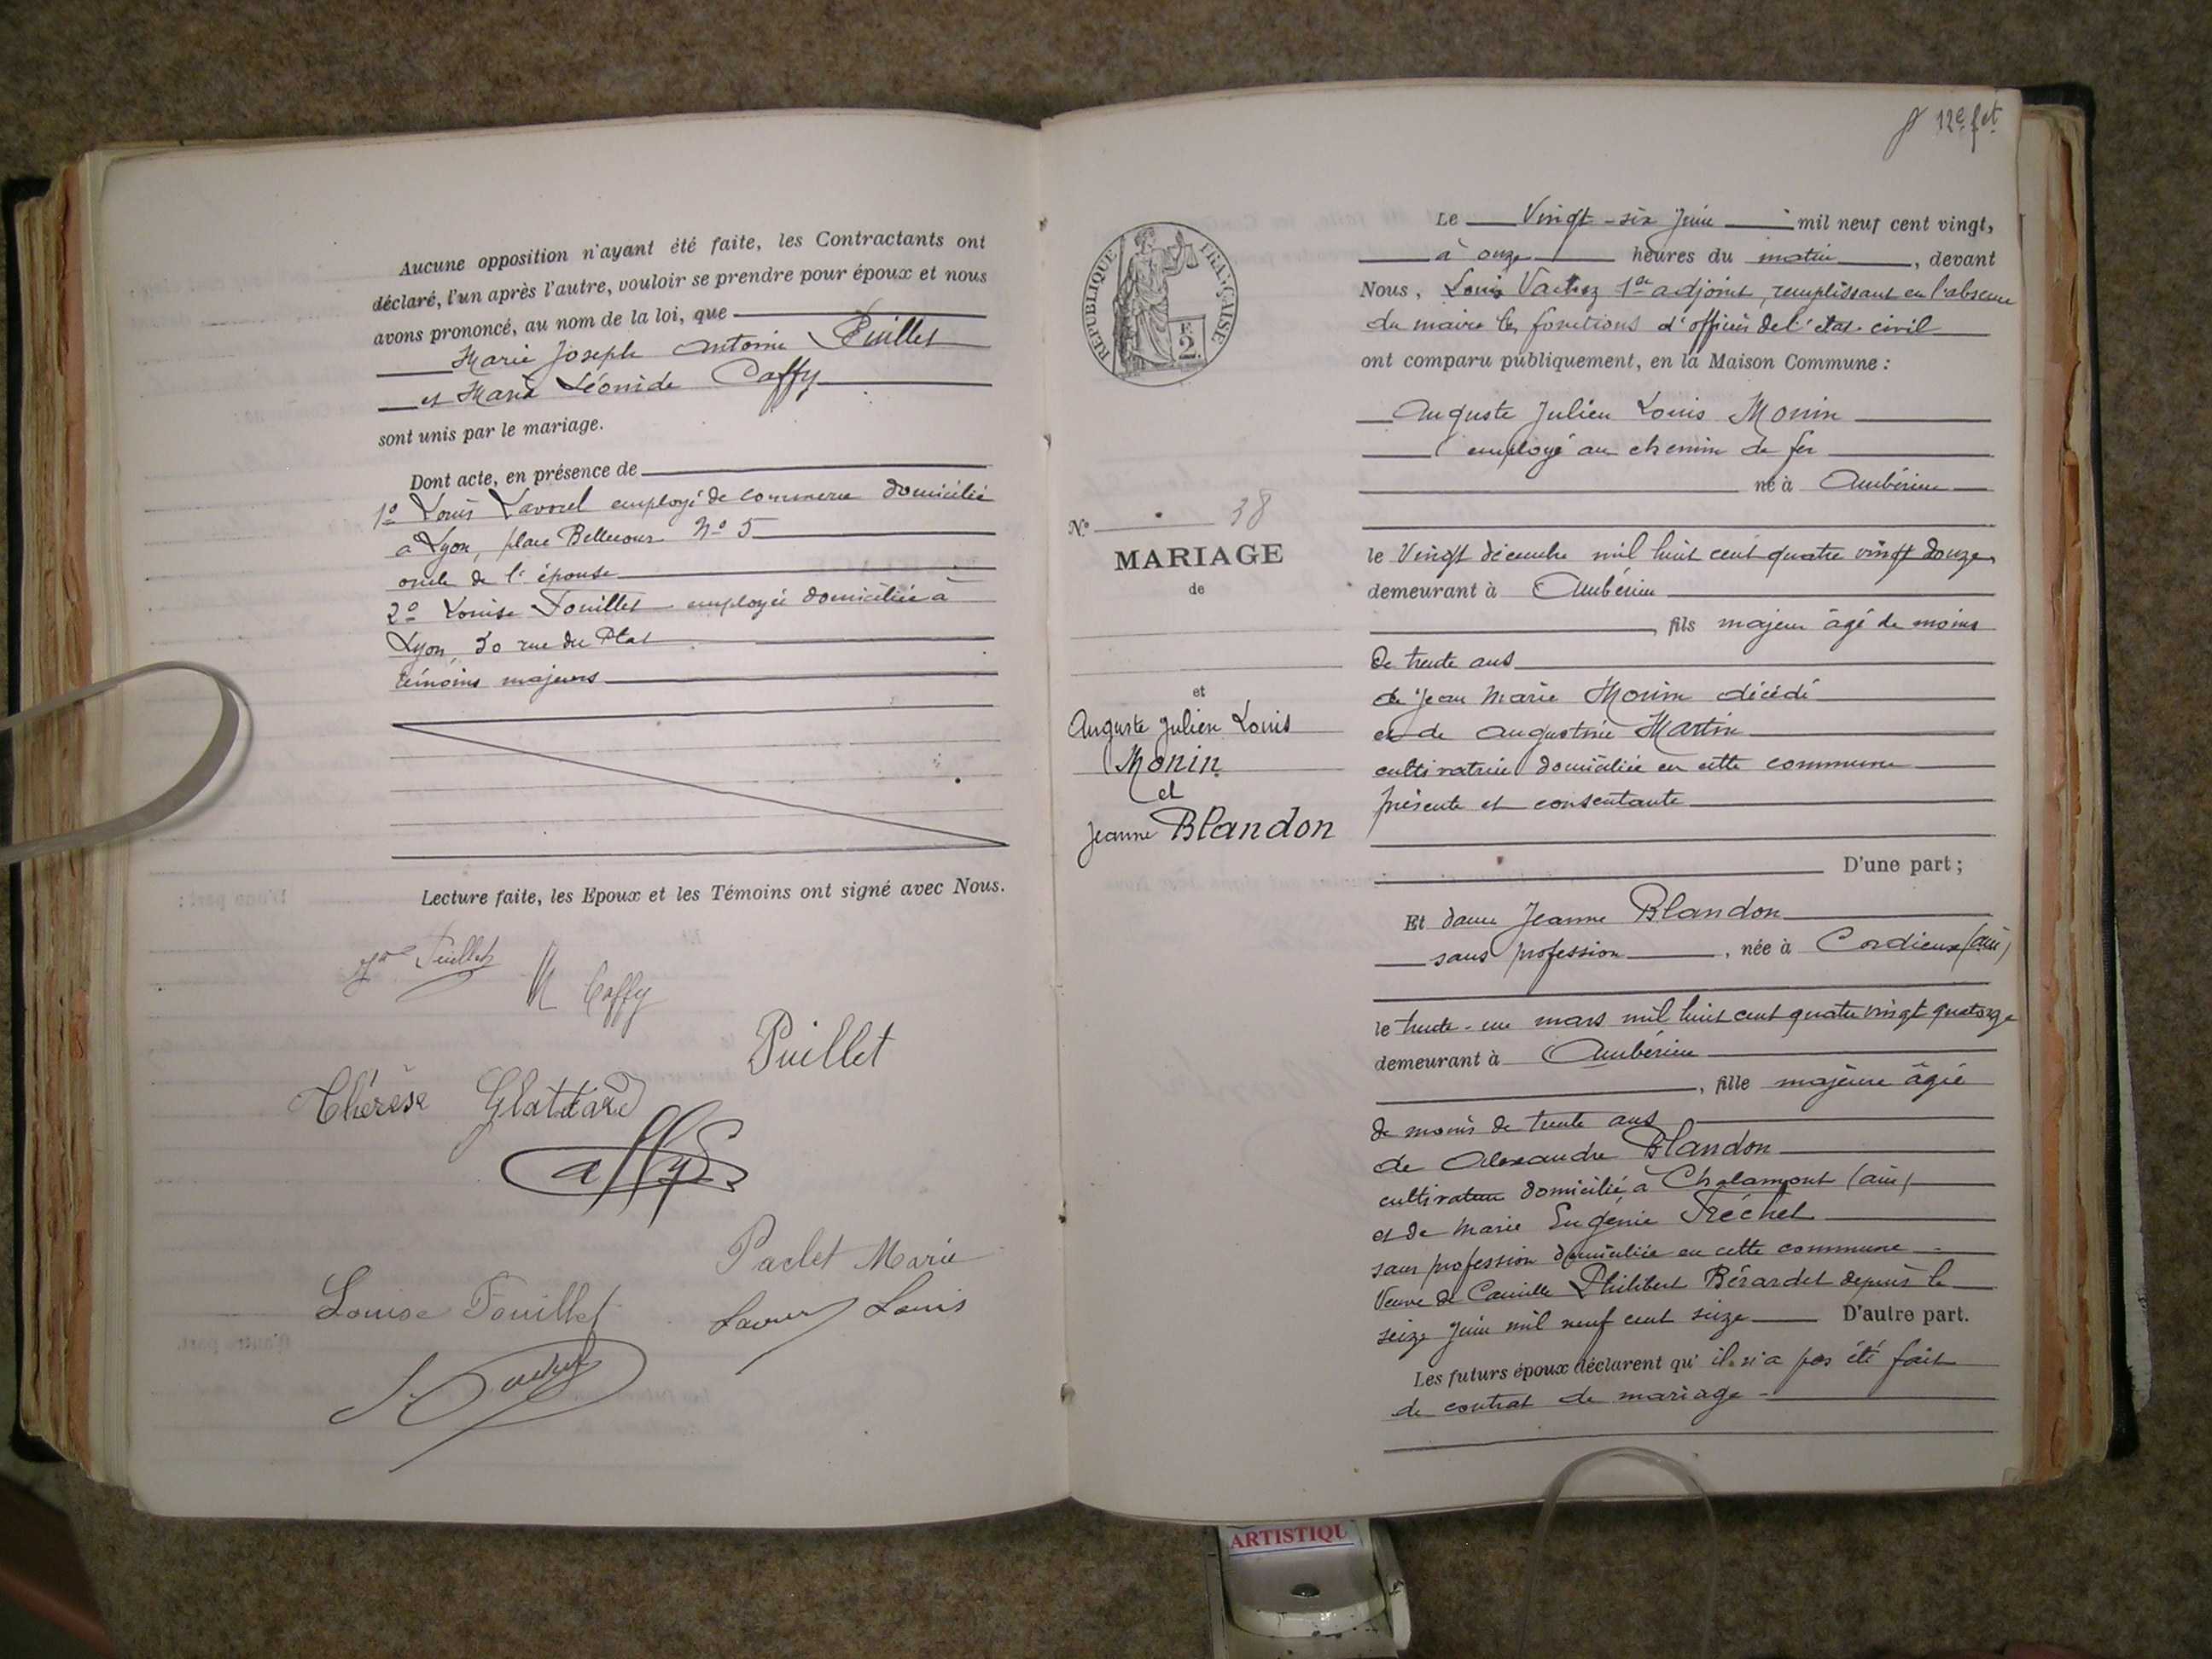 Aucune opposition n'ayant été faite, les Contractants ont
déclaré, l'un après l'autre, vouloir se prendre pour époux et nous
avons prononcé, au nom de la loi, que
Marie Joseph Antoine Puillet
et Maria Léonide Caffy
sont unis par le mariage.
Dont acte, en présence de
1º Louis Lavorel employé de commerce domicilié
à Lyon, place Bellecour Nº 5
oncle de l'épouse
2º Louise Fouillet employée domiciliée à
Lyon 30 rue du Plat
témoins majeurs
Lecture faite, les Epoux et les Témoins ont signé avec Nous.
Puillet
M Caffy
Puillet
Thérèse Glattard
Caffy
Paclet Marie
Louise Fouillet
Louis
12e fet
Le Vingt-six Juin mil neuf cent vingt,
à onze heures du matin, devant
Nous, Louis 1er adjoint, remplissant en l'absence
du maire les fonctions d'officier de l'état-civil
ont comparu publiquement, en la Maison Commune :
Auguste Julien Louis Monin
employé au chemin de fer
né à Ambérieu
le Vingt décembre mil huit cent quatre vingt douze
demeurant à Ambérieu
, fils majeur âgé de moins
de trente ans
de Jean Marie Monin décédé
et de Augustine Martin
cultivatrice domiciliée en cette commune
présente et consentante
D'une part ;
RÉPUBLIQUE FRANÇAISE
E.
2.
Nº 38
MARIAGE
de
et
Auguste Julien Louis
Monin
et
Jeanne Blandon
Et dame Jeanne Blandon
sans profession, née à Cordieux (ain)
le trente-un mars mil huit cent quatre vingt quatorze
demeurant à Ambérieu
, fille majeure âgée
de moins de trente ans
de Alexandre Blandon
cultivateur domicilié à Chalamont (ain)
et de Marie Eugénie Tréchet
sans profession domiciliée en cette commune
Veuve de Camille Philibert Bérardet depuis le
seize Juin mil neuf cent seize D'autre part.
Les futurs époux déclarent qu'il n'a pas été fait
de contrat de mariage
ARTISTIQU